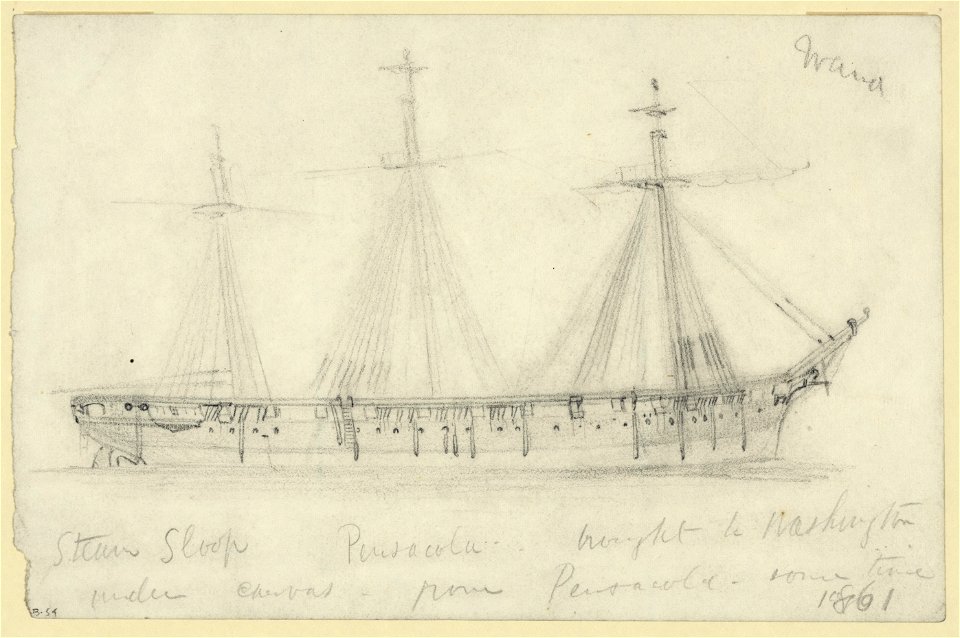 Waud
Steam Sloop Pensacola - brought to Washington
under canvas - from Pensacola - some time
1861
B-54